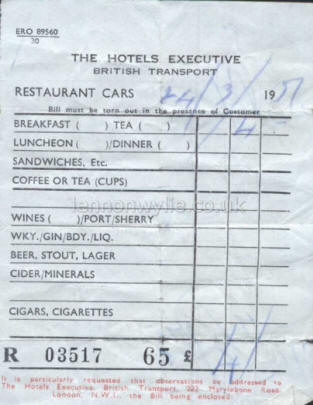 ERO 89560
30
THE HOTELS EXECUTIVE
BRITISH TRANSPORT
RESTAURANT CARS 24/3/1951
Bill must be torn out in the presence of Customer
BREAKFAST ( ) TEA ( )
LUNCHEON ( )/DINNER ( )
SANDWICHES, Etc.
COFFEE OR TEA (CUPS)
lennonwylie.co.uk
WINES ( )/PORT/SHERRY
WKY./GIN/BDY./LIQ.
BEER, STOUT, LAGER
CIDER/MINERALS
CIGARS, CIGARETTES
R 03517 65 £
It is particularly requested that observations be addressed to
The Hotels Executive, British Transport, 222, Marylebone Road,
London, N.W.1., the Bill being enclosed.